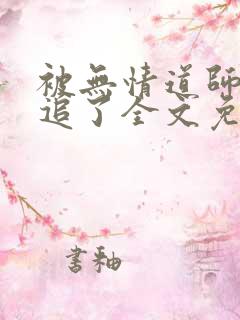 被無情道師
追了全文免
書釉